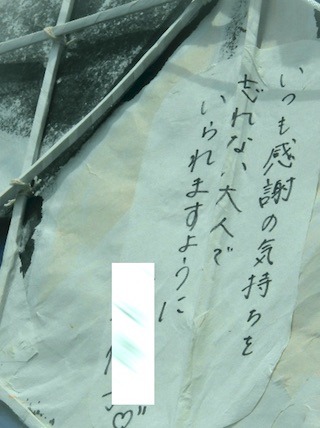 いつも感謝の気持ちを
忘れない大人で
いられますように